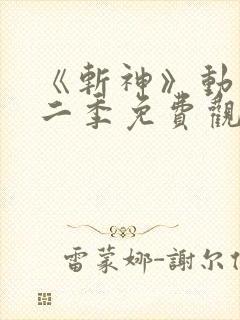 《斬神》動
二季免費觀
雷蒙娜-謝尔